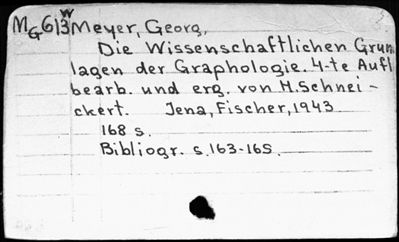 MG613W Meyer, Georg,
Die Wissenschaftlichen Grun
lagen der Graphologie. 4-te Aufl
bearb. und erg. von H. Schnei-
ckert. Jena, Fischer, 1943
168 s.
Bibliogr. s. 163-165.